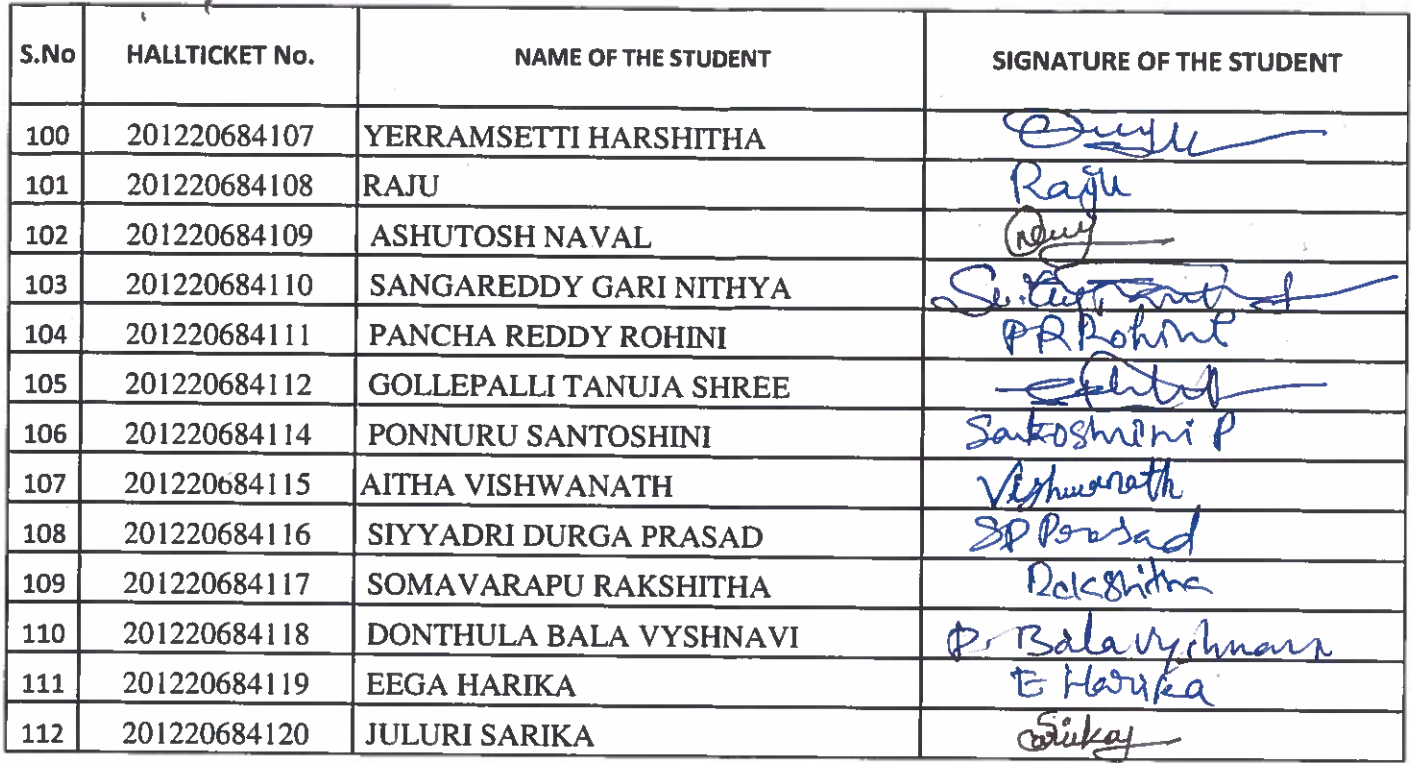 S.No HALLTICKET No. NAME OF THE STUDENT SIGNATURE OF THE STUDENT
100 201220684107 YERRAMSETTI HARSHITHA
101 201220684108 RAJU Raju
102 201220684109 ASHUTOSH NAVAL
103 201220684110 SANGAREDDY GARI NITHYA
104 201220684111 PANCHA REDDY ROHINI PR Rohini
105 201220684112 GOLLEPALLI TANUJA SHREE
106 201220684114 PONNURU SANTOSHINI Santoshini P
107 201220684115 AITHA VISHWANATH Vishwanath
108 201220684116 SIYYADRI DURGA PRASAD SD Prasad
109 201220684117 SOMAVARAPU RAKSHITHA Rakshitha
110 201220684118 DONTHULA BALA VYSHNAVI D. Bala Vyshnavi
111 201220684119 EEGA HARIKA E Harika
112 201220684120 JULURI SARIKA